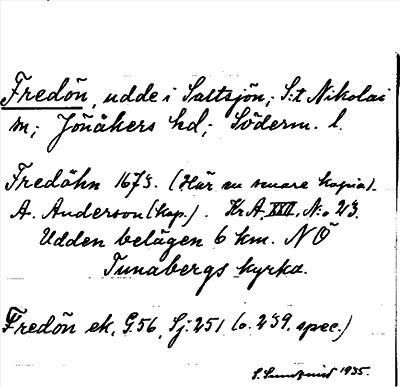 Fredön, udde i Saltsjön; S:t Nikolai
m; Jönåkers hd; Söderm. l.
Fredöhn 1675. (Här en senare kopia).
A. Anderson (kop.). Kr A, XXII, N:o 23.
Udden belägen 6 km. NÖ
Tunabergs kyrka.
Fredön ek, G.56, Sj:251 (o. 239. spec.)
1935.